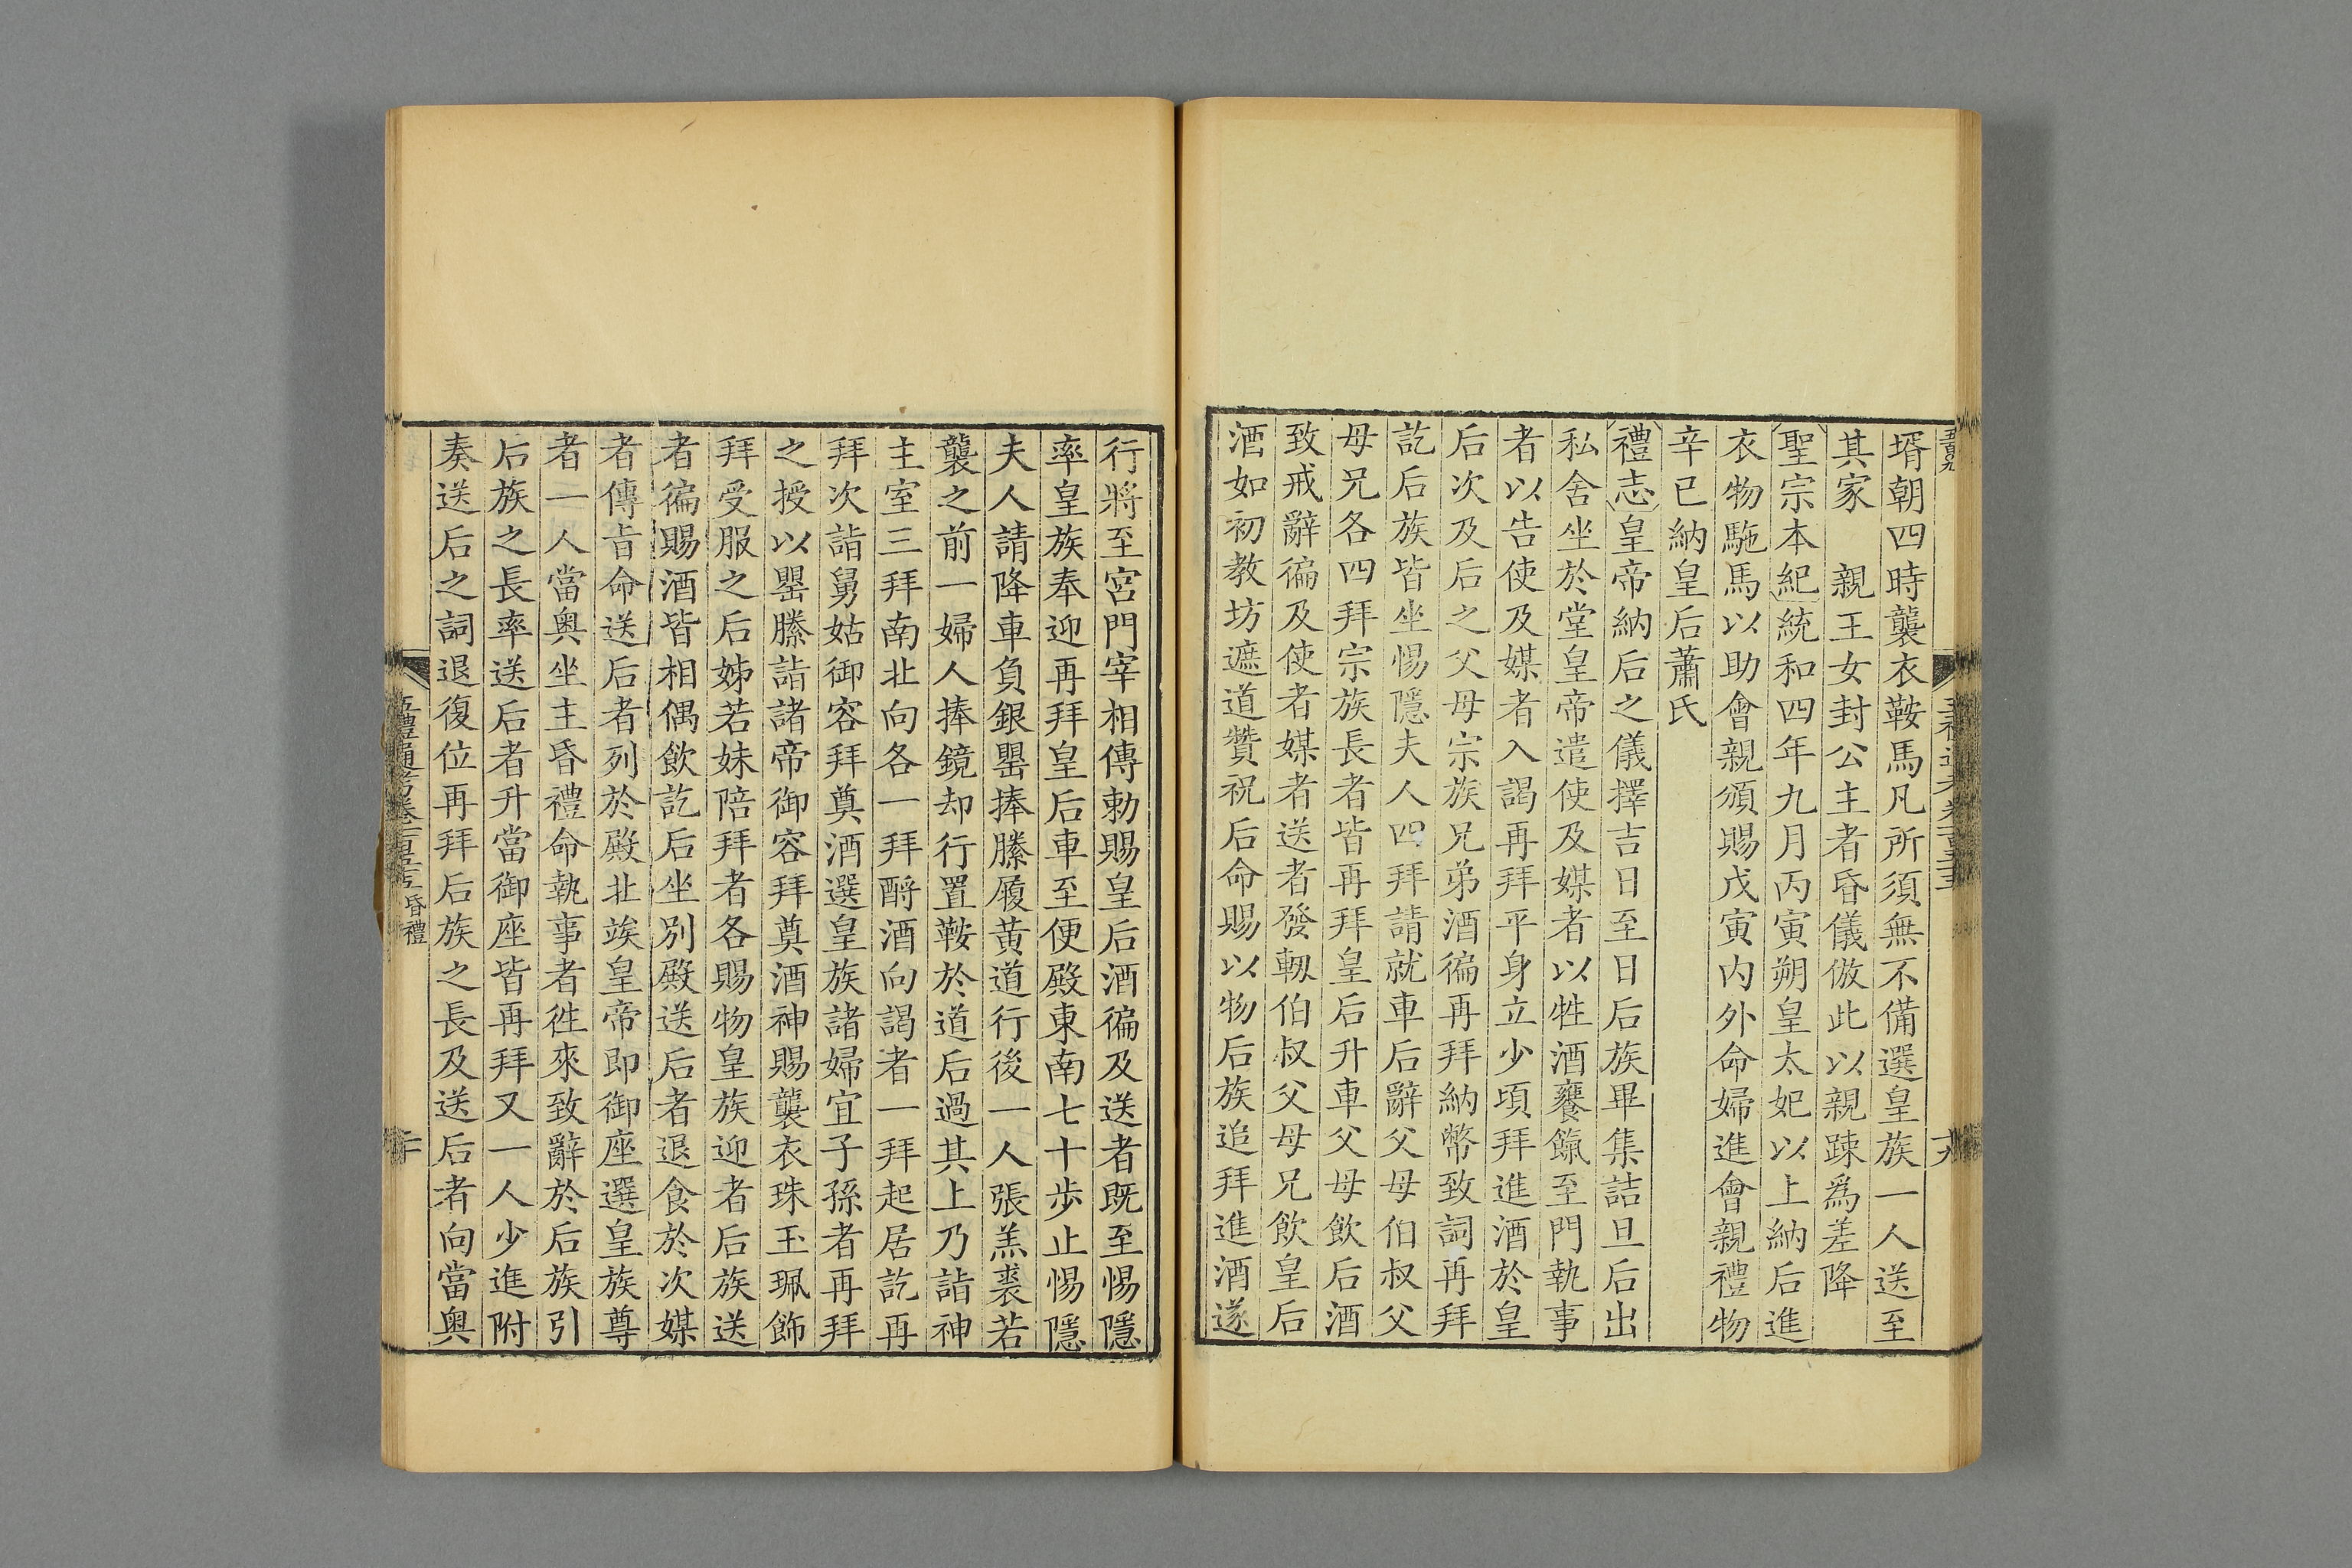 壻朝四時襲衣鞍馬凡所須無不備選皇族一人送至
其家　親王女封公主者昏儀倣此以親踈為差降
聖宗本紀統和四年九月丙寅朔皇太妃以上納后進
衣物駞馬以助會親頒賜戊寅内外命婦進會親禮物
辛已納皇后蕭氏
禮志皇帝納后之儀擇吉日至日后族畢集詰旦后出
私舍坐於堂皇帝遣使及媒者以牲酒饔餼至門執事
者以告使及媒者入謁再拜平身立少頃拜進酒於皇
后次及后之父母宗族兄弟酒徧再拜納幣致詞再拜
訖后族皆坐惕隱夫人四拜請就車后辭父母伯叔父
母兄各四拜宗族長者皆再拜皇后升車父母飲后酒
致戒辭徧及使者媒者送者發軔伯叔父母兄飲皇后
酒如初教坊遮道贊祝后命賜以物后族追拜進酒遂
行將至宮門宰相傳勅賜皇后酒徧及送者既至惕隱
率皇族奉迎再拜皇后車至便殿東南七十歩止惕隱
夫人請降車負銀罌捧縢履黄道行後一人張羔裘若
襲之前一婦人捧鏡却行置鞍於道后過其上乃詣神
主室三拜南北向各一拜酹酒向謁者一拜起居訖再
拜次詣舅姑御容拜奠酒選皇族諸婦宜子孫者再拜
之授以罌縢詣諸帝御容拜奠酒神賜襲衣珠玉珮飾
拜受服之后姊若妹陪拜者各賜物皇族迎者后族送
者徧賜酒皆相偶飲訖后坐別殿送后者退食於次媒
者傳旨命送后者列於殿北竢皇帝即御座選皇族尊
者一人當奥坐主昏禮命執事者徃來致辭於后族引
后族之長率送后者升當御座皆再拜又一人少進附
奏送后之詞退復位再拜后族之長及送后者向當奥
五禮通考卷一百五十三　昏禮　二十